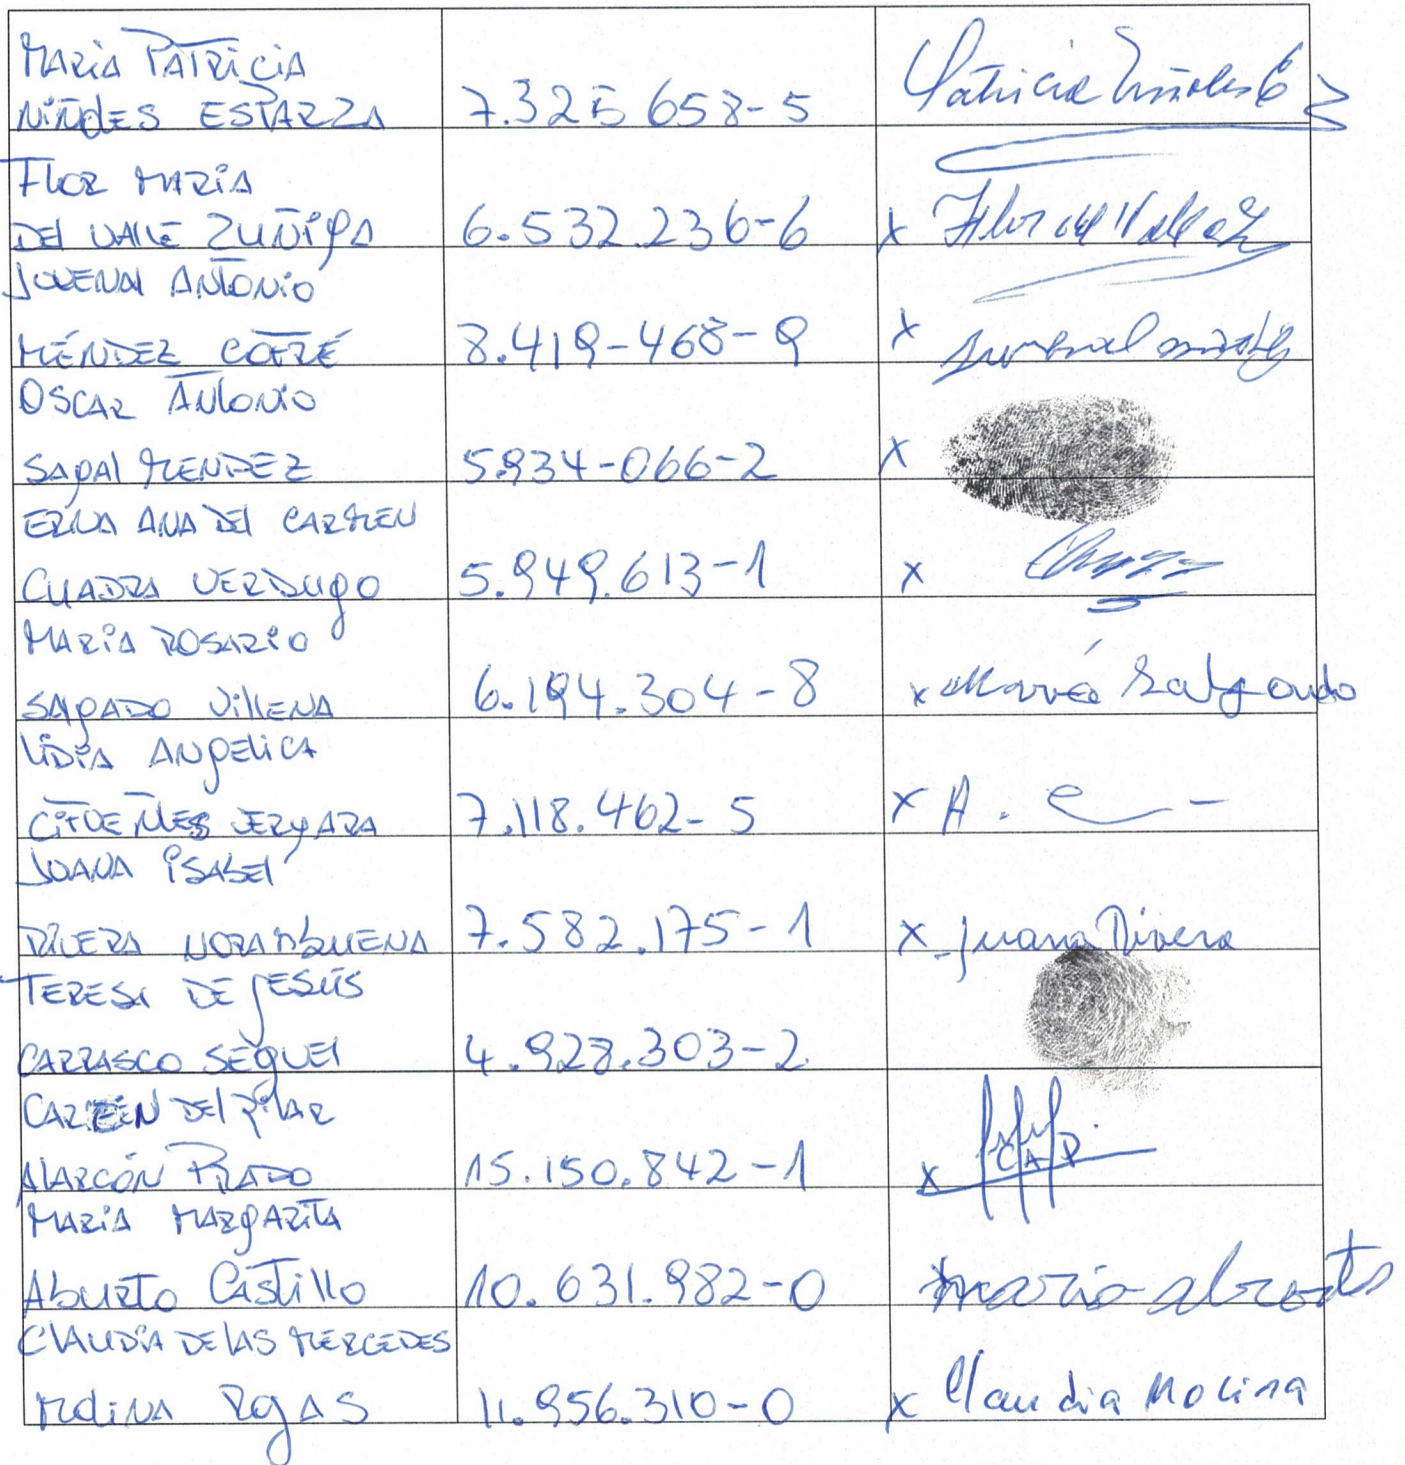 MARIA PATRICIA
NIÑOLES ESPARZA 7.325 658-5 Patricia Niñoles E
FLOR MARIA
DEL VALLE ZUÑIGA 6.532.236-6 x Flor del Valle Z
JUVENAL ANTONIO
MÉNDEZ COFRÉ 8.419-468-9 x Juvenal
OSCAR ANTONIO
SAGAL MENDEZ 5.934-066-2 x
ERNA ANA DEL CARMEN
CUADRA VERDUGO 5.949.613-1 x
MARIA ROSARIO
SALGADO VILLENA 6.194.304-8 x María Salgado
LIDIA ANGELICA
CIFUENTES VERGARA 7.118.462-5 x A. C
JUANA ISABEL
RIVERA NORAMBUENA 7.582.175-1 x Juana Rivera
TERESA DE JESÚS
CARRASCO SEGUEL 4.928.303-2
CARMEN DEL PILAR
ALARCÓN PRADO 15.150.842-1 x C.A.P.
MARIA MARGARITA
ABURTO CASTILLO 10.631.982-0 x maria aburto
CLAUDIA DE LAS MERCEDES
MOLINA ROJAS 11.956.310-0 x Claudia Molina